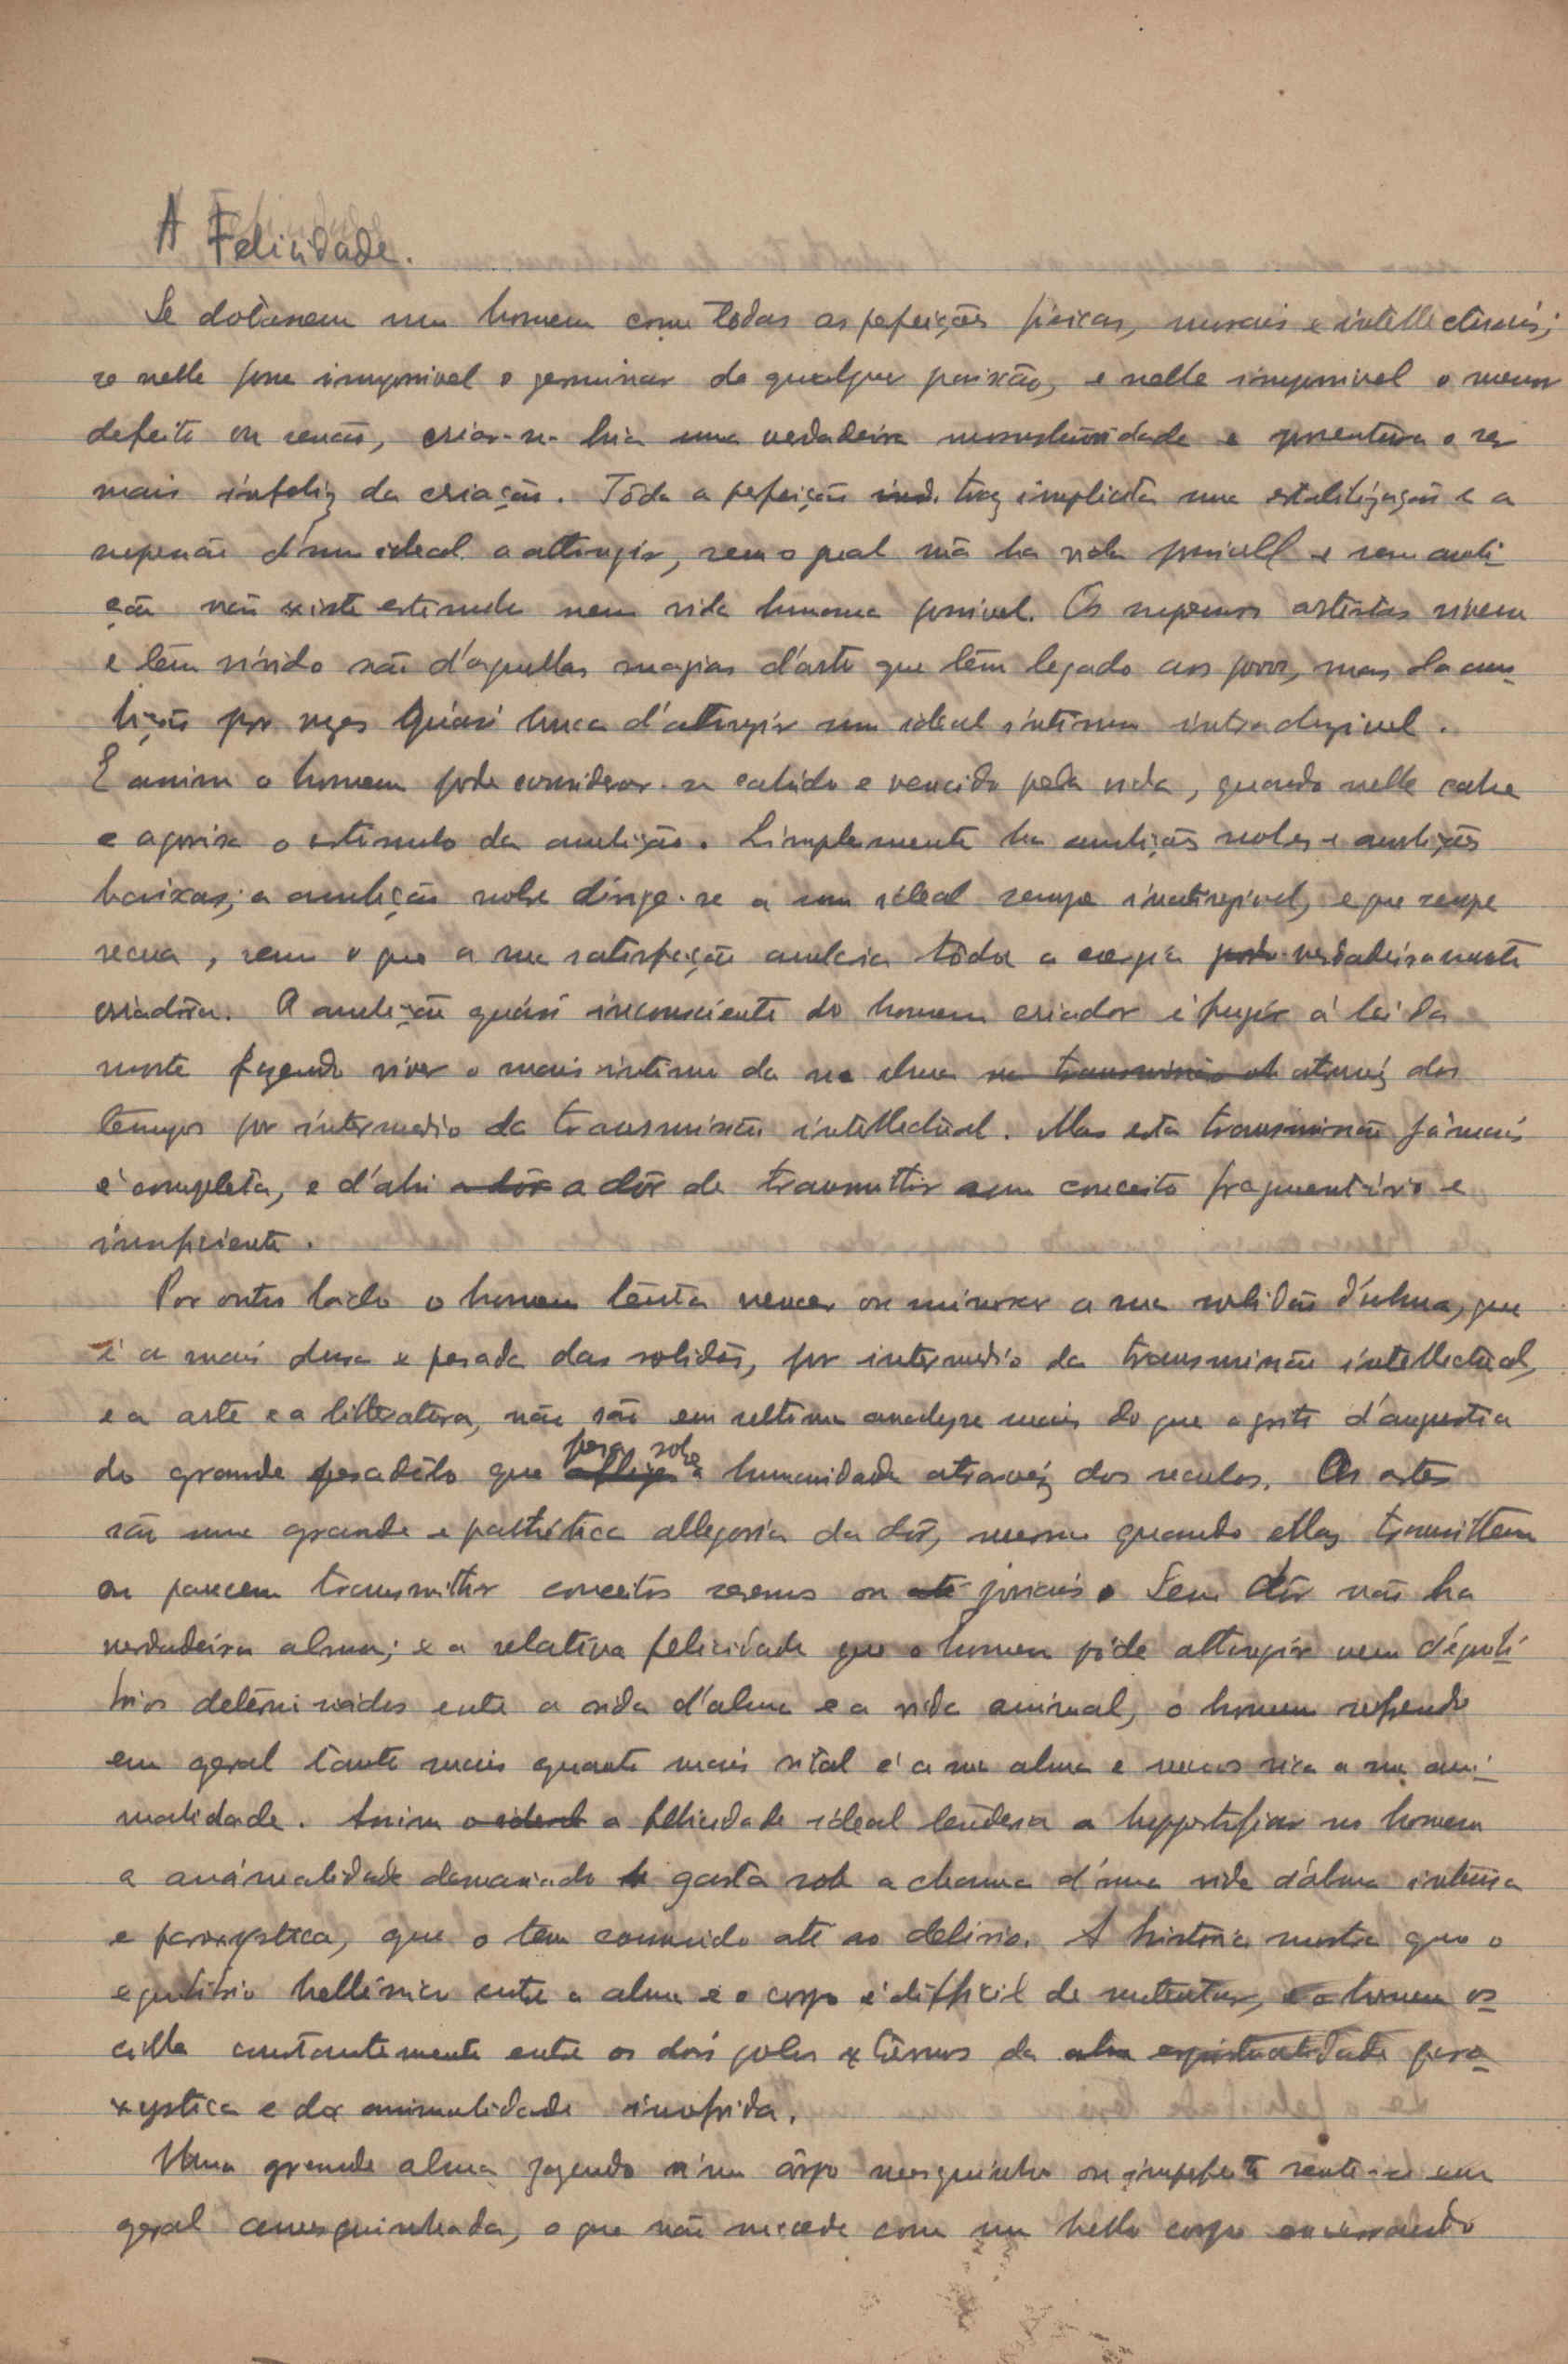 A Felicidade.
Se dotassem um homem com todas as perfeições físicas, morais e intellectuais;
se nelle fosse impossivel o germinar de qualquer paixão, e nelle impossivel o menor
defeito ou senão, criar-se-hia uma verdadeira monstruosidade e porventura o ser
mais infeliz da criação. Tôda a perfeição traz implicita uma estabilização e a
supressão d'um ideal a attingir, sem o qual não ha vida possivel e sem ambi-
ção não existe estimulo nem vida humana possivel. Os supremos artistas vivem
e têm vivido não d'aquellas magias d'arte que têm legado aos povos, mas da am-
bição por vezes quási louca d'attingir um ideal intimo intraduzivel.
E assim o homem pode considerar-se cahido e vencido pela vida, quando nelle cahe
e agonisa o estimulo da ambição. Simplesmente ha ambições nobres e ambições
baixas; a ambição nobre dirige-se a um ideal sempre inattingivel, e que sempre
recua, sem o que a sua satisfação anularia tôda a energia verdadeiramente
criadôra. A ambição quási inconsciente do homem criador é fugir á lei da
morte fazendo viver o mais intimo da sua alma na transmissão atravéz dos
tempos por intermedio da transmissão intellectual. Mas esta transmissão jámais
é completa, e d'ahi a dôr a dôr de transmittir um conceito fragmentário e
insuficiente.
Por outro lado o homem tenta vencer ou minorar a sua solidão d'alma, que
é a mais dura e pesada das solidões, por intermedio da transmissão intellectual,
e a arte e a litteratura, não são em ultima analyse mais do que o grito d'angustia
do grande pesadêlo que afflige pesa sobre a humanidade atravéz dos seculos. As artes
são uma grande e pathética allegoria da dôr, mesmo quando ellas transmittem
ou parecem transmittir conceitos serenos ou até joviais. Sem dôr não ha
verdadeira alma; e a relativa felicidade que o homem póde attingir vem d'equilí-
brios determinados entre a vida d'alma e a vida animal, o homem soffrendo
em geral tanto mais quanto mais vital é a sua alma e menos rica a sua ani-
malidade. Assim o ideal a felicidade ideal tenderia a hypertrofiar no homem
a animalidade demasiado gasta sob a chama d'uma vida d'alma intensa
e paroxystica, que o tem consumido até ao delirio. A história mostra que o
equilibrio hellénico entre a alma e o corpo é difficil de sustentar, e o homem os-
cilla constantemente entre os dois polos extremos da alma espiritualidade paro-
xystica e da animalidade insofrida.
Uma grande alma jazendo n'um côrpo mesquinho ou imperfeito sente-se em
geral amesquinhada, o que não sucede com um bello corpo encerrando